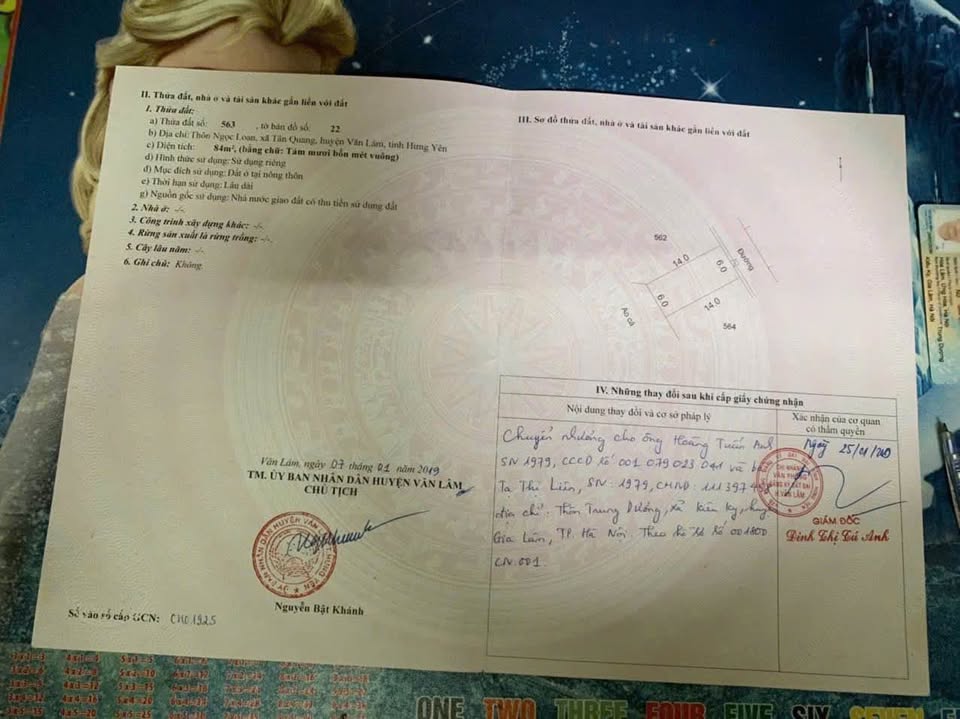 II. Thửa đất, nhà ở và tài sản khác gắn liền với đất
1. Thửa đất:
a) Thửa đất số: 563 , tờ bản đồ số: 22
b) Địa chỉ: Thôn Ngọc Loan, xã Tân Quang, huyện Văn Lâm, tỉnh Hưng Yên
c) Diện tích: 84m², (bằng chữ: Tám mươi bốn mét vuông)
d) Hình thức sử dụng: Sử dụng riêng
đ) Mục đích sử dụng: Đất ở tại nông thôn
e) Thời hạn sử dụng: Lâu dài
g) Nguồn gốc sử dụng: Nhà nước giao đất có thu tiền sử dụng đất
2. Nhà ở: -/-.
3. Công trình xây dựng khác: -/-.
4. Rừng sản xuất là rừng trồng: -/-.
5. Cây lâu năm: -/-
6. Ghi chú: Không
Văn Lâm, ngày 07 tháng 01 năm 2019
TM. ỦY BAN NHÂN DÂN HUYỆN VĂN LÂM
CHỦ TỊCH
Nguyễn Bật Khánh
Số vào sổ cấp GCN: CH01925
III. Sơ đồ thửa đất, nhà ở và tài sản khác gắn liền với đất
562
14.0
6.0
Đường
Ao cá
6.0
14.0
564
IV. Những thay đổi sau khi cấp giấy chứng nhận
Nội dung thay đổi và cơ sở pháp lý
Xác nhận của cơ quan
có thẩm quyền
Chuyển nhượng cho ông Hoàng Tuấn Anh
SN 1979, CCCD số 001 079 023 041 và bà
Tạ Thị Liên, SN: 1979, CMND: 111397
địa chỉ: Thôn Trung Dương, xã Kiêu Kỵ, huyện
Gia Lâm, TP. Hà Nội. Theo hồ sơ số 001800
CN.001.
Ngày 25/01/20
CHI NHÁNH
VĂN PHÒNG
ĐĂNG KÝ ĐẤT ĐAI
H VĂN LÂM
GIÁM ĐỐC
Đinh Thị Tú Anh
ONE TWO THREE FOUR FIVE SIX SEVEN